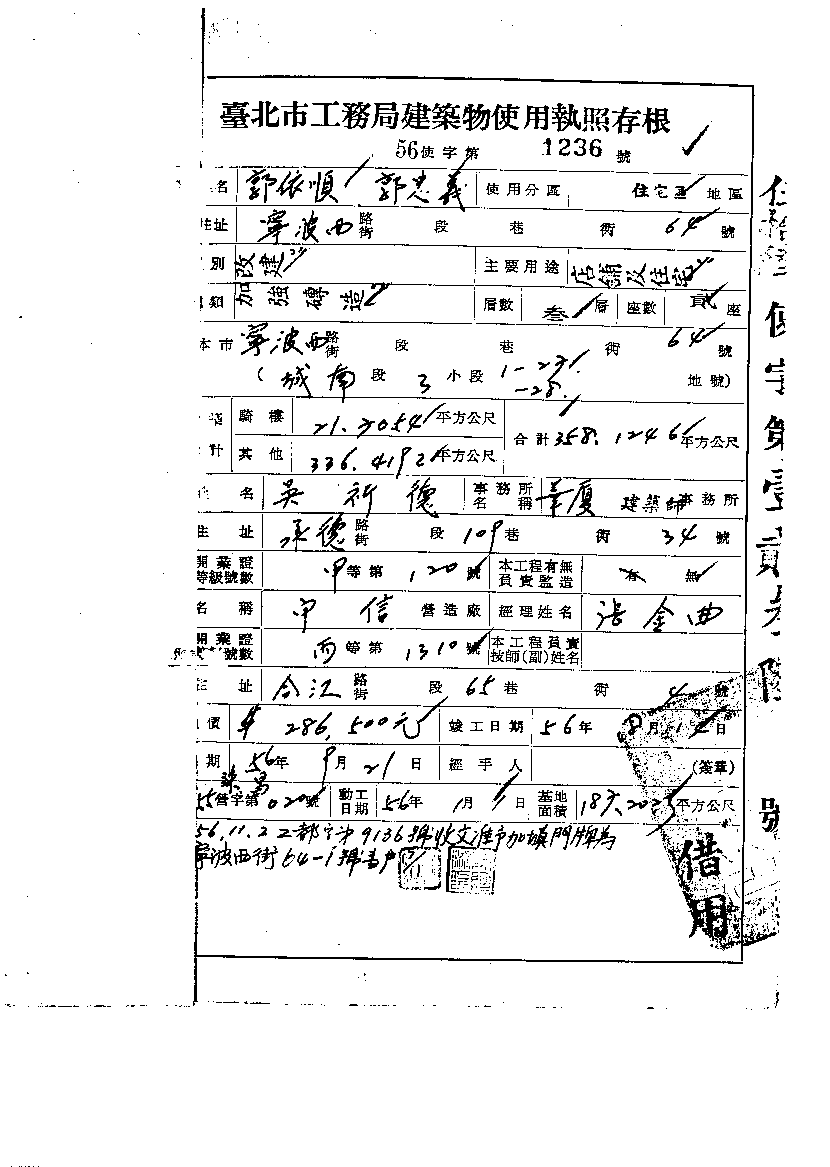 臺北市工務局建築物使用執照存根
56使字第 1236 號
名 郭依順 郭忠義 使用分區 住宅區 地區
住址 寧波西路街 段 巷 街 64 號
別 改建 主要用途 店舖及住宅
類 加強磚造 層數 叁 層 座數 貳 座
本市 寧波西路街 段 巷 街 64 號
(城南段 3 小段 1-27 -28 地號)
騎樓 21.7054 平方公尺 合計 358.1246 平方公尺
計 其他 336.4192 平方公尺
姓名 吳祈德 事務所名稱 華廈 建築師事務所
住址 承德路街 段 109 巷 街 34 號
開業證等級號數 甲等第 120 號 本工程有無負責監造 有 無
名稱 中信 營造廠 經理姓名 張金曲
開業證號數 丙等第 1310 號 本工程負責技師(副)姓名
住址 合江路街 段 65 巷 街 4 號
價 286,500元 竣工日期 56年 8月 14日
期 56年 9月 21日 經手人 (簽章)
55營字第 020 號 動工日期 56年 1月 1日 基地面積 平方公尺
56.11.22都字第9136號收文准予加填門牌為
寧波西街64-1號
借用
使字第壹貳叁 號